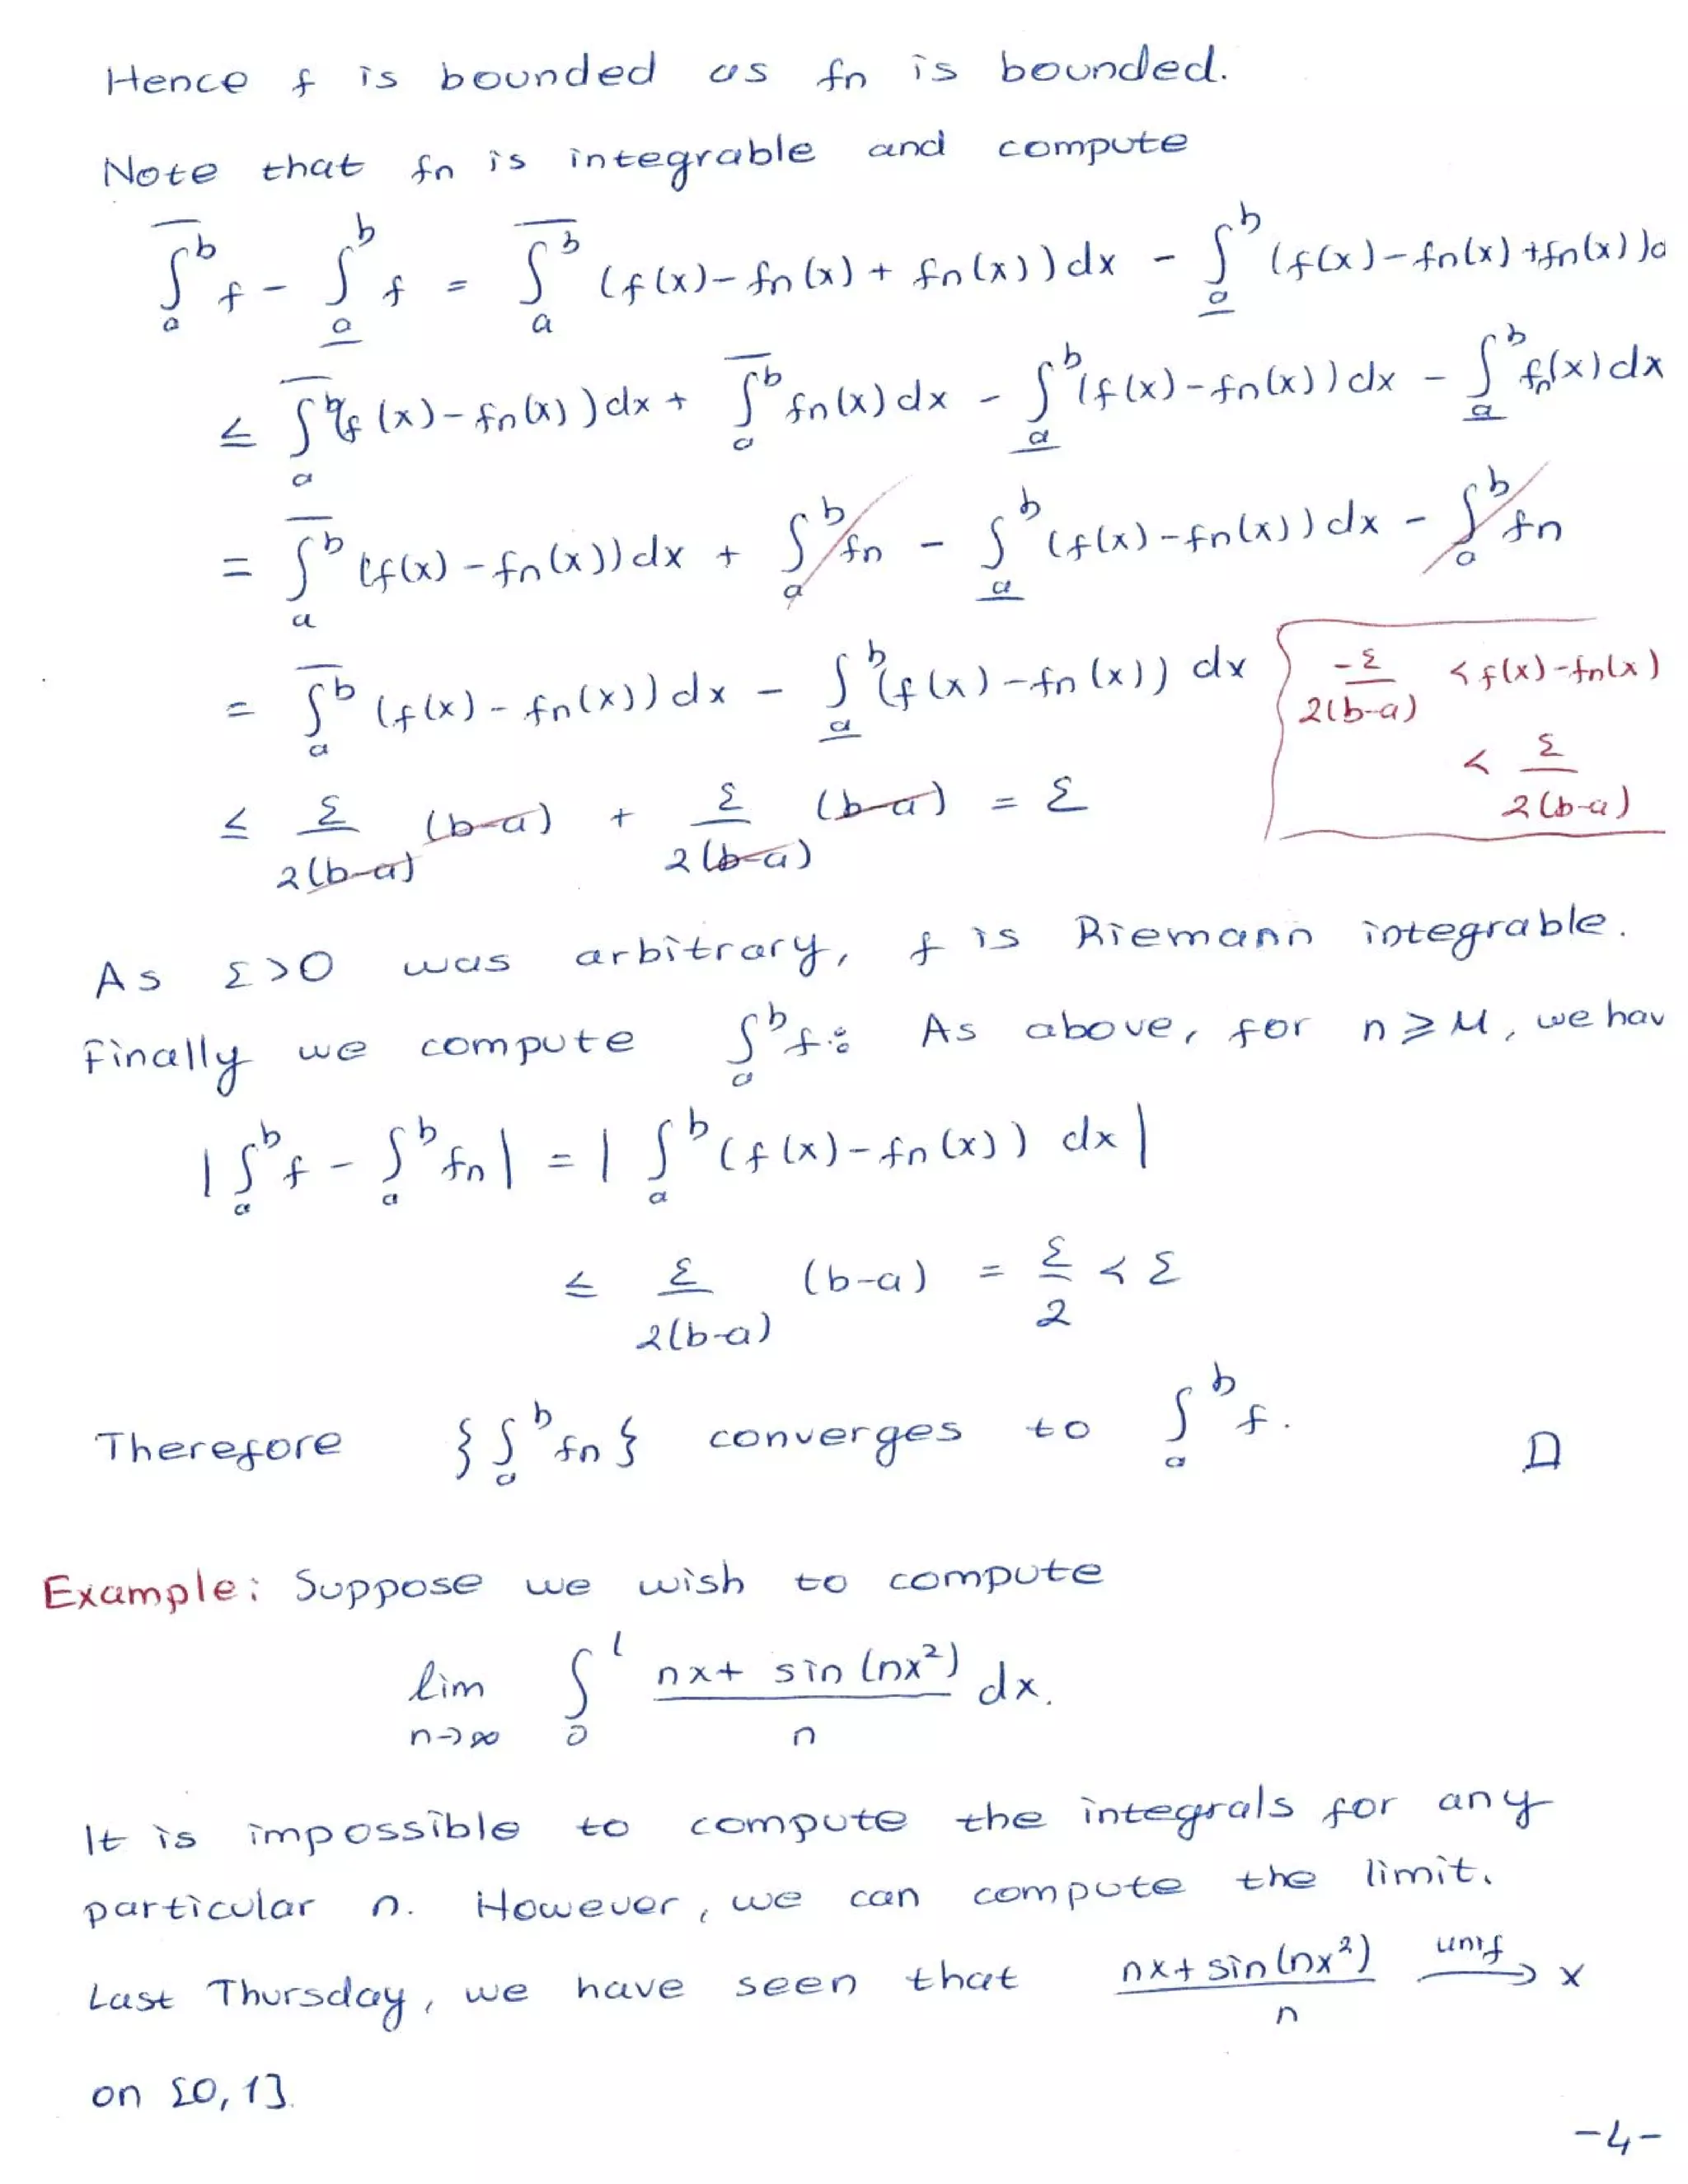 Hence f is bounded as fn is bounded.
Note that fn is integrable and compute
‾∫ₐᵇ f - ∫ₐᵇ f = ‾∫ₐᵇ (f(x)-fn(x) + fn(x))dx - ∫ₐᵇ (f(x)-fn(x)+fn(x))d
≤ ‾∫ₐᵇ (f(x)-fn(x))dx + ‾∫ₐᵇ fn(x)dx - ∫ₐᵇ (f(x)-fn(x))dx - ∫ₐᵇ fn(x)dx
= ‾∫ₐᵇ (f(x)-fn(x))dx + ∫ₐᵇ fn - ∫ₐᵇ (f(x)-fn(x))dx - ∫ₐᵇ fn
= ‾∫ₐᵇ (f(x)-fn(x))dx - ∫ₐᵇ (f(x)-fn(x)) dx
-ε/2(b-a) < f(x)-fn(x)
< ε/2(b-a)
≤ ε/2(b-a) (b-a) + ε/2(b-a) (b-a) = ε
As ε>0 was arbitrary, f is Riemann integrable.
Finally we compute ∫ₐᵇ f: As above, for n ≥ M, we hav
|∫ₐᵇ f - ∫ₐᵇ fn| = |∫ₐᵇ (f(x)-fn(x)) dx|
≤ ε/2(b-a) (b-a) = ε/2 < ε
Therefore {∫ₐᵇ fn} converges to ∫ₐᵇ f. □
Example: Suppose we wish to compute
lim n→∞ ∫₀¹ nx+ sin(nx²)/n dx.
It is impossible to compute the integrals for any
particular n. However, we can compute the limit.
Last Thursday, we have seen that nx+sin(nx²)/n unif→ x
on [0,1].
-4-